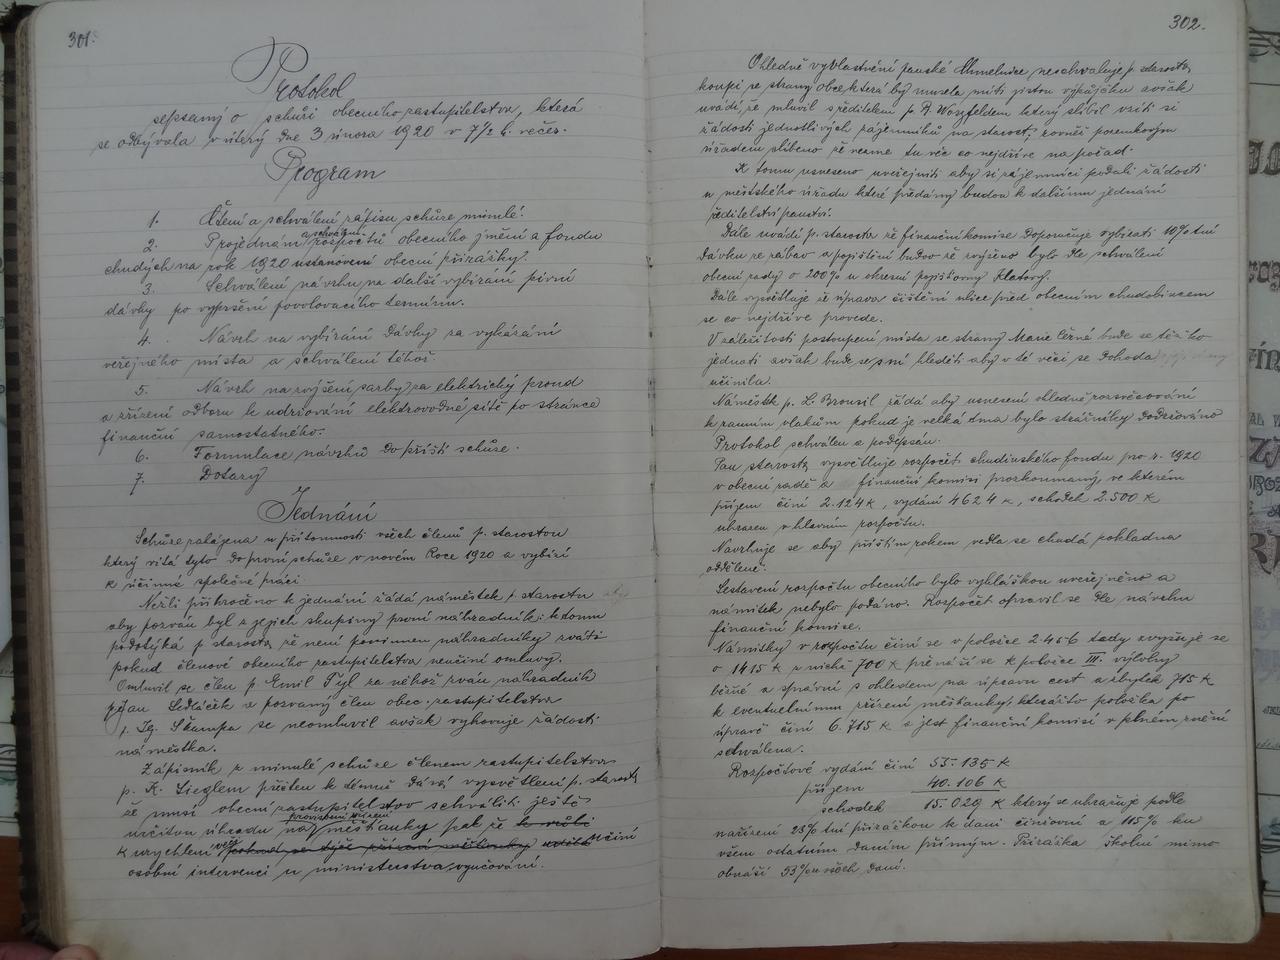 301.
Protokol
sepsaný o schůzi obecního zastupitelstva, která
se odbývala v úterý dne 3 února 1920 v 7½ h. večer.
Program
1. Čtení a schválení zápisu schůze minulé.
2. Projednání a schválení rozpočtů obecního jmění a fondu
chudých na rok 1920 ustanovení obecní přirážky.
3. Schválení návrhu na další vybírání pivní
dávky po vypršení povolovacího termínu.
4. Návrh na vybírání dávky za vykázání
veřejného místa a schválení téhož.
5. Návrh na zvýšení sazby za elektrický proud
a zřízení odboru k udržování elektrovodné sítě po stránce
finanční samostatného.
6. Formulace návrhů do příští schůze.
7. Dotazy
Jednání
Schůze zalájena u přítomnosti všech členů p. starostou
který vítá tyto do první schůze v novém Roce 1920 a vybízí
k účinné společné práci.
Nežli přikročeno k jednání žádá náměstek p. starostu
aby pozván byl z jejich skupiny první náhradník; k tomu
podotýká p starosta, že není povinnen náhradníky zváti
pokud členové obecního zastupitelstva neučiní omluvy.
Omluvil se člen p. Emil Tyl za něhož zván náhradník
p. Jan Sedláček a pozvaný člen obec. zastupitelstva
p. Ig. Škampa se neomluvil avšak vyhovuje žádosti
náměstka.
Zápisník z minulé schůze členem zastupitelstva
p. K. Sieglem přečten k čemuž dává vysvětlení p. starosta
že musí obecní zastupitelstvo schválit ještě
určitou úhradu na provisorní zřízení měšťanky pak že
k urychlení věci učiní
osobní intervenci u ministerstva vyučování.
302.
Ohledně vyvlastnění panské Chmelnice neschvaluje p. starosta
koupi se strany obce která by musela míti pistou výkůjčku avšak
uvádí, že mluvil s ředitelem p. R. Woszfeldem který slíbil vzíti si
žádosti jednotlivých zájemníků na starost; rovněž pozemkovým
úřadem slíbeno že vezme tu věc co nejdříve na pořad.
K tomu usneseno uveřejniti aby si zájemníci podali žádosti
u městského úřadu které předány budou k dalšímu jednání
ředitelství panství.
Dále uvádí p. starosta že finanční komise doporučuje vybírati 10% tní
dávku ze zábav a pojištění budov že zvýšeno bylo dle schválení
obecní rady o 200% u okresní pojišťovny Klatovy.
Dále vysvětluje že úprava čištění ulice před obecním chudobincem
se co nejdříve provede.
V záležitosti postoupení místa se strany Marie Černé bude se těžko
jednati avšak bude se s ní hleděti aby v té věci se dohoda
učinila.
Náměstek p. L. Brousil žádá aby usnesení ohledně rozsvěcování
k ranním vlakům pokud je velká tma bylo strážníky dodržováno
Protokol schválen a podepsán.
Pan starosta vysvětluje rozpočet chudinského fondu pro r. 1920
v obecní radě a finanční komisi prozkoumaný, ve kterém
příjem činí 2.124 K, vydání 4624 K, schodek 2.500 K
uhrazen v hlavním rozpočtu.
Navrhuje se aby příštím rokem vedla se chudá pokladna
odděleně.
Sestavení rozpočtu obecního bylo vyhláškou uveřejněno a
námitek nebylo podáno. Rozpočet opravil se dle návrhu
finanční komise.
Námitky v rozpočtu činí se v položce 2.456 tady zvyšuje se
o 1415 K z nichž 700 K přenáší se k položce III. výlohy
běžné a správní s ohledem na úpravu cest a zbytek 715 K
k eventuelnímu zřízení měšťanky, kterážto položka po
úpravě činí 6.715 K a jest finanční komisí v plném znění
schválena.
Rozpočtové vydání činí 55.135 K
příjem 40.106 K
schodek 15.029 K který se uhražuje podle
nařízení 25% tní přirážkou k dani činžovní a 115% ku
všem ostatním daním přímým. Přirážka školní mimo
obnáší 53% u všech daní.